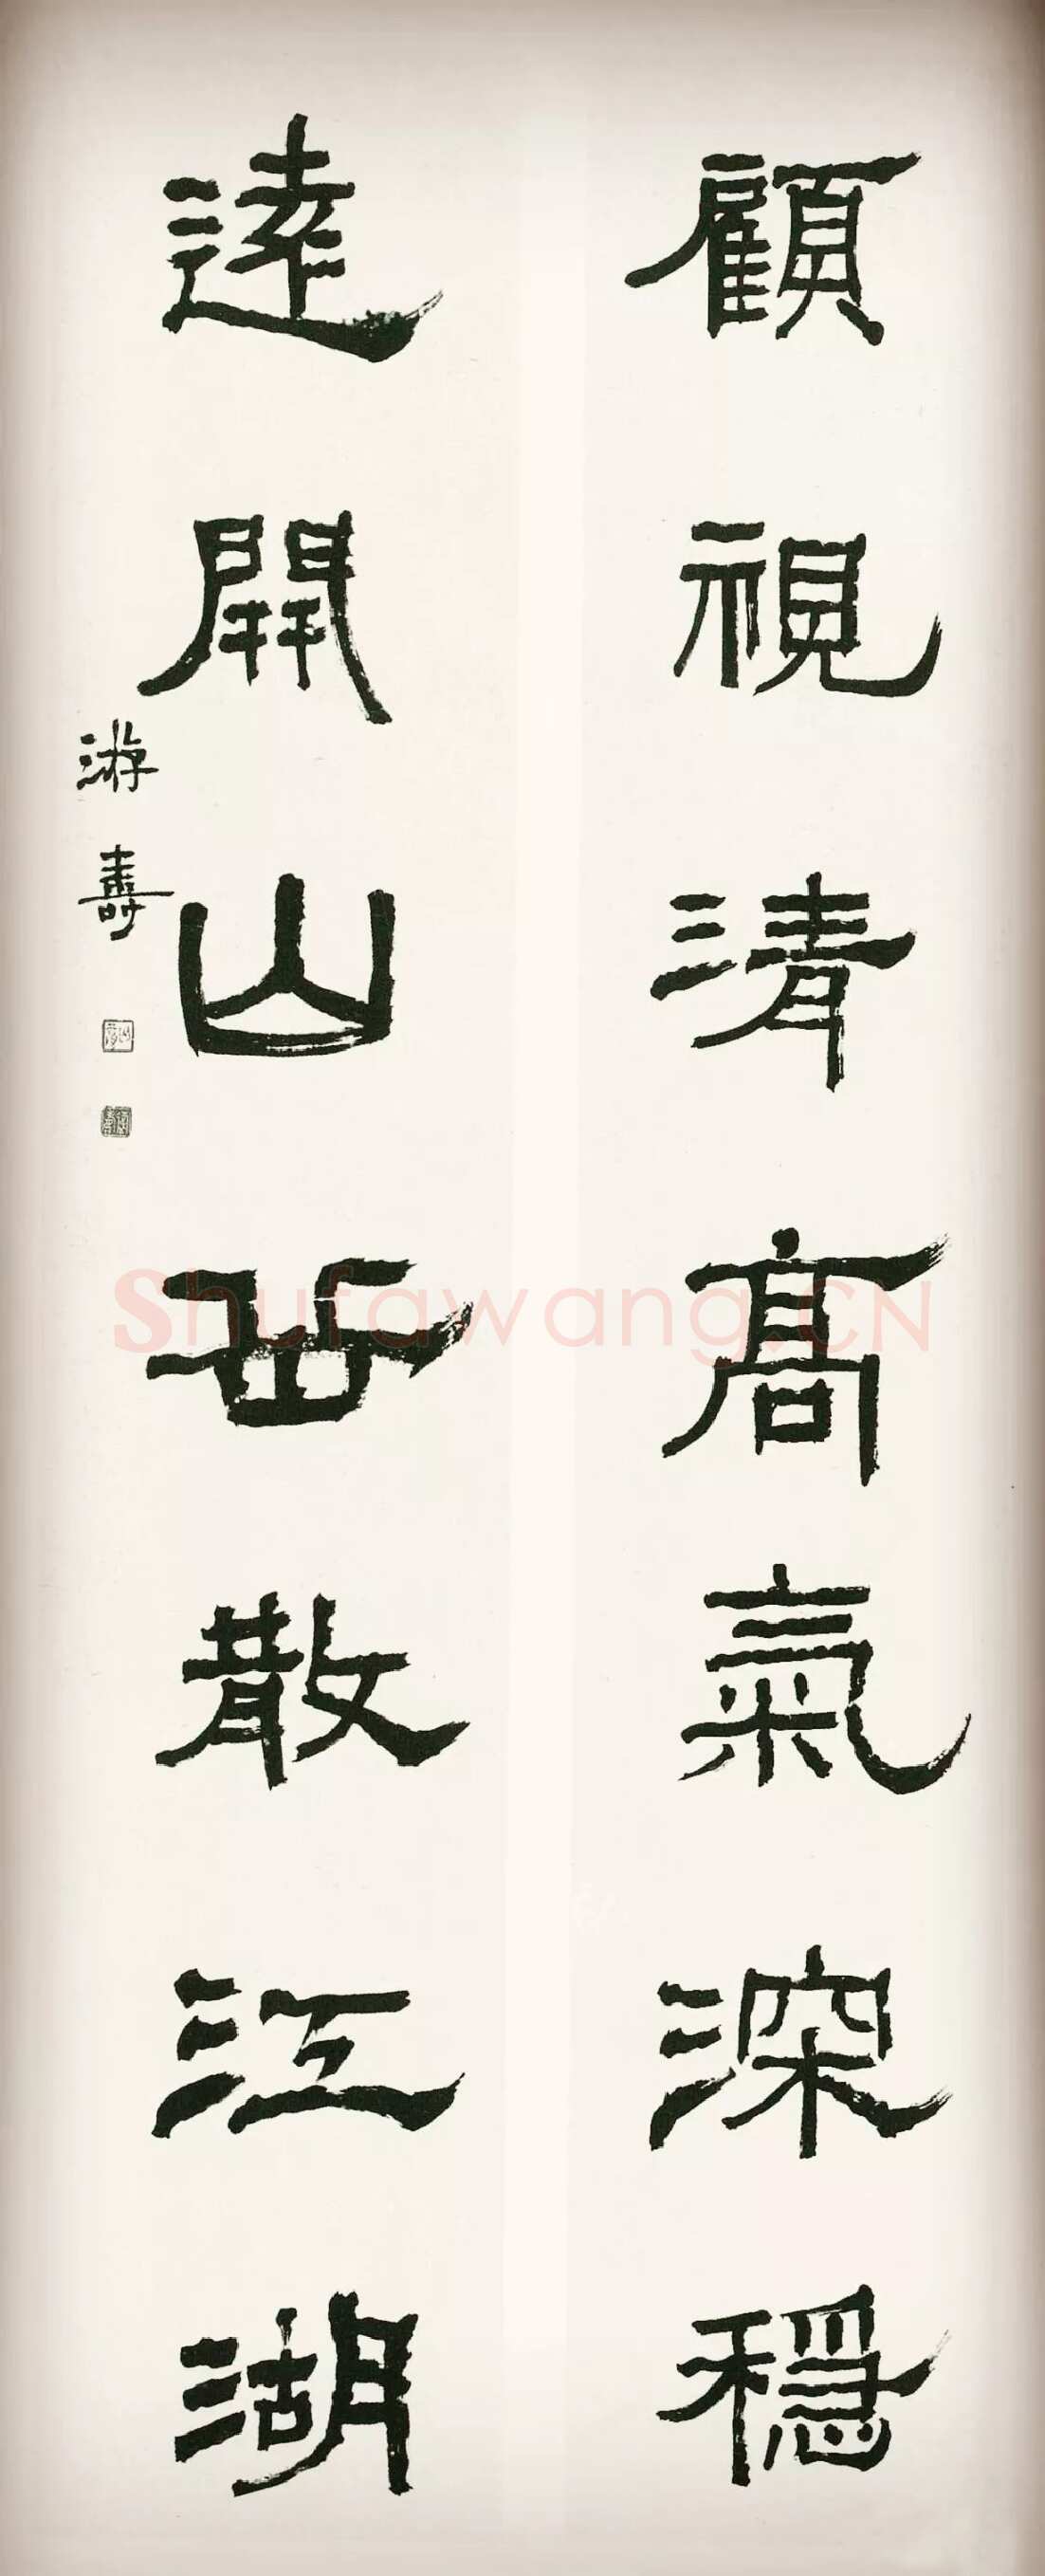 顧視清高氣深穩
遠開山岳散江湖
游壽
Shufawang.CN